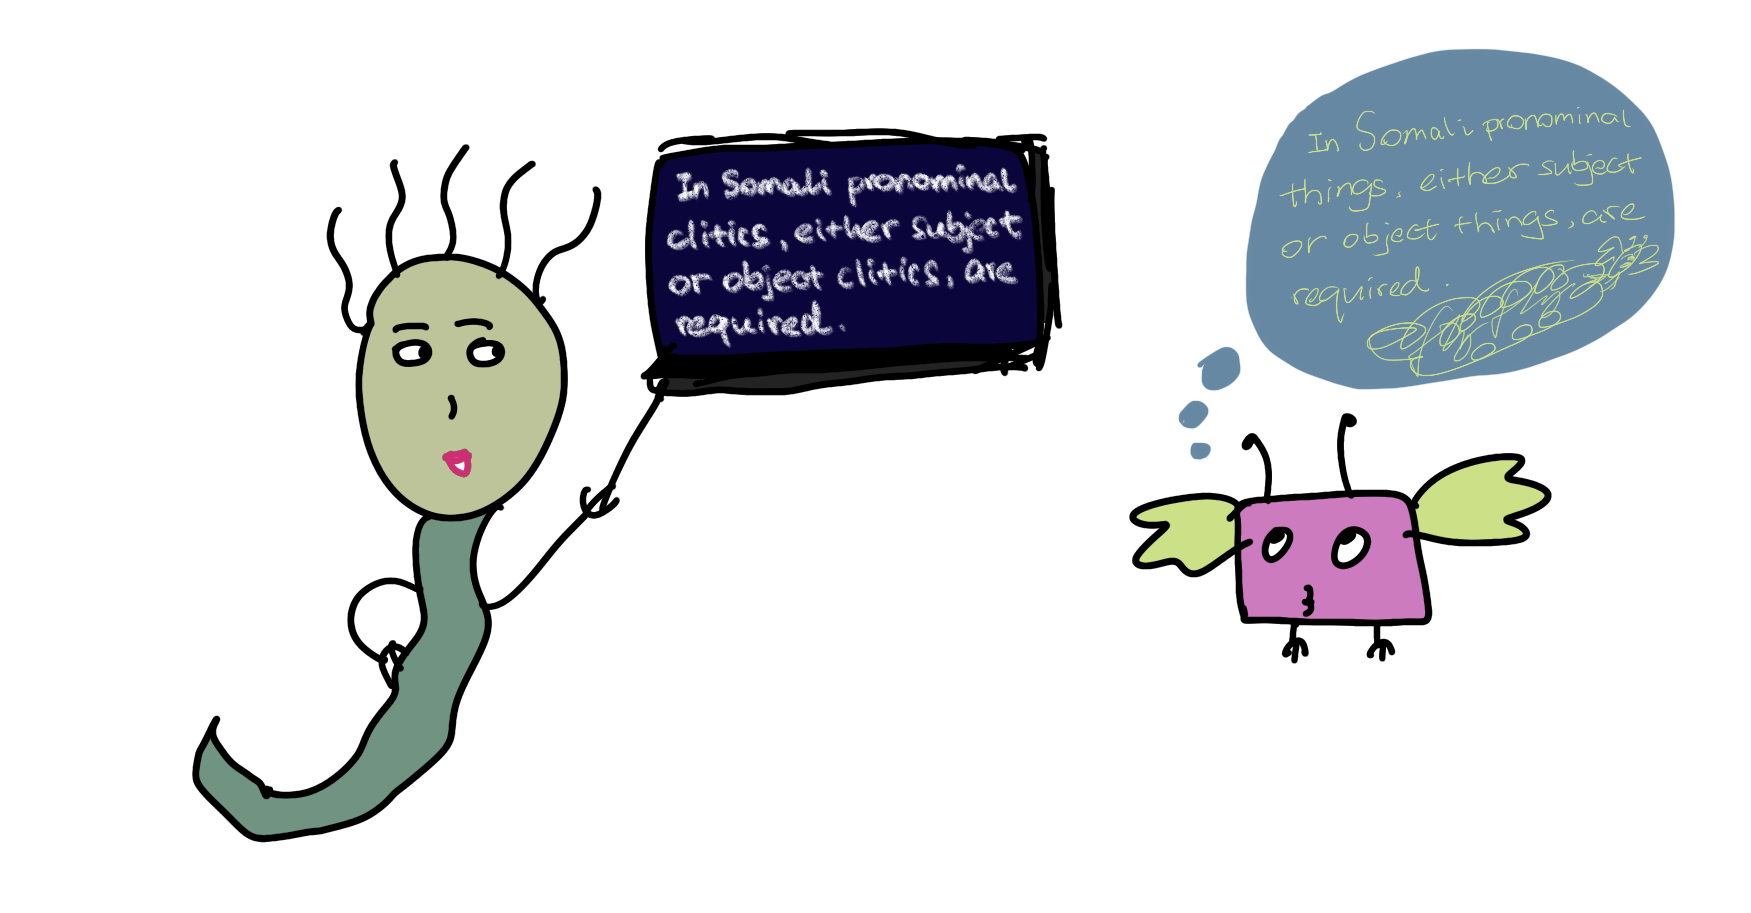 In Somali pronominal
clitics, either subject
or object clitics, are
required.
In Somali pronominal
things, either subject
or object things, are
required.